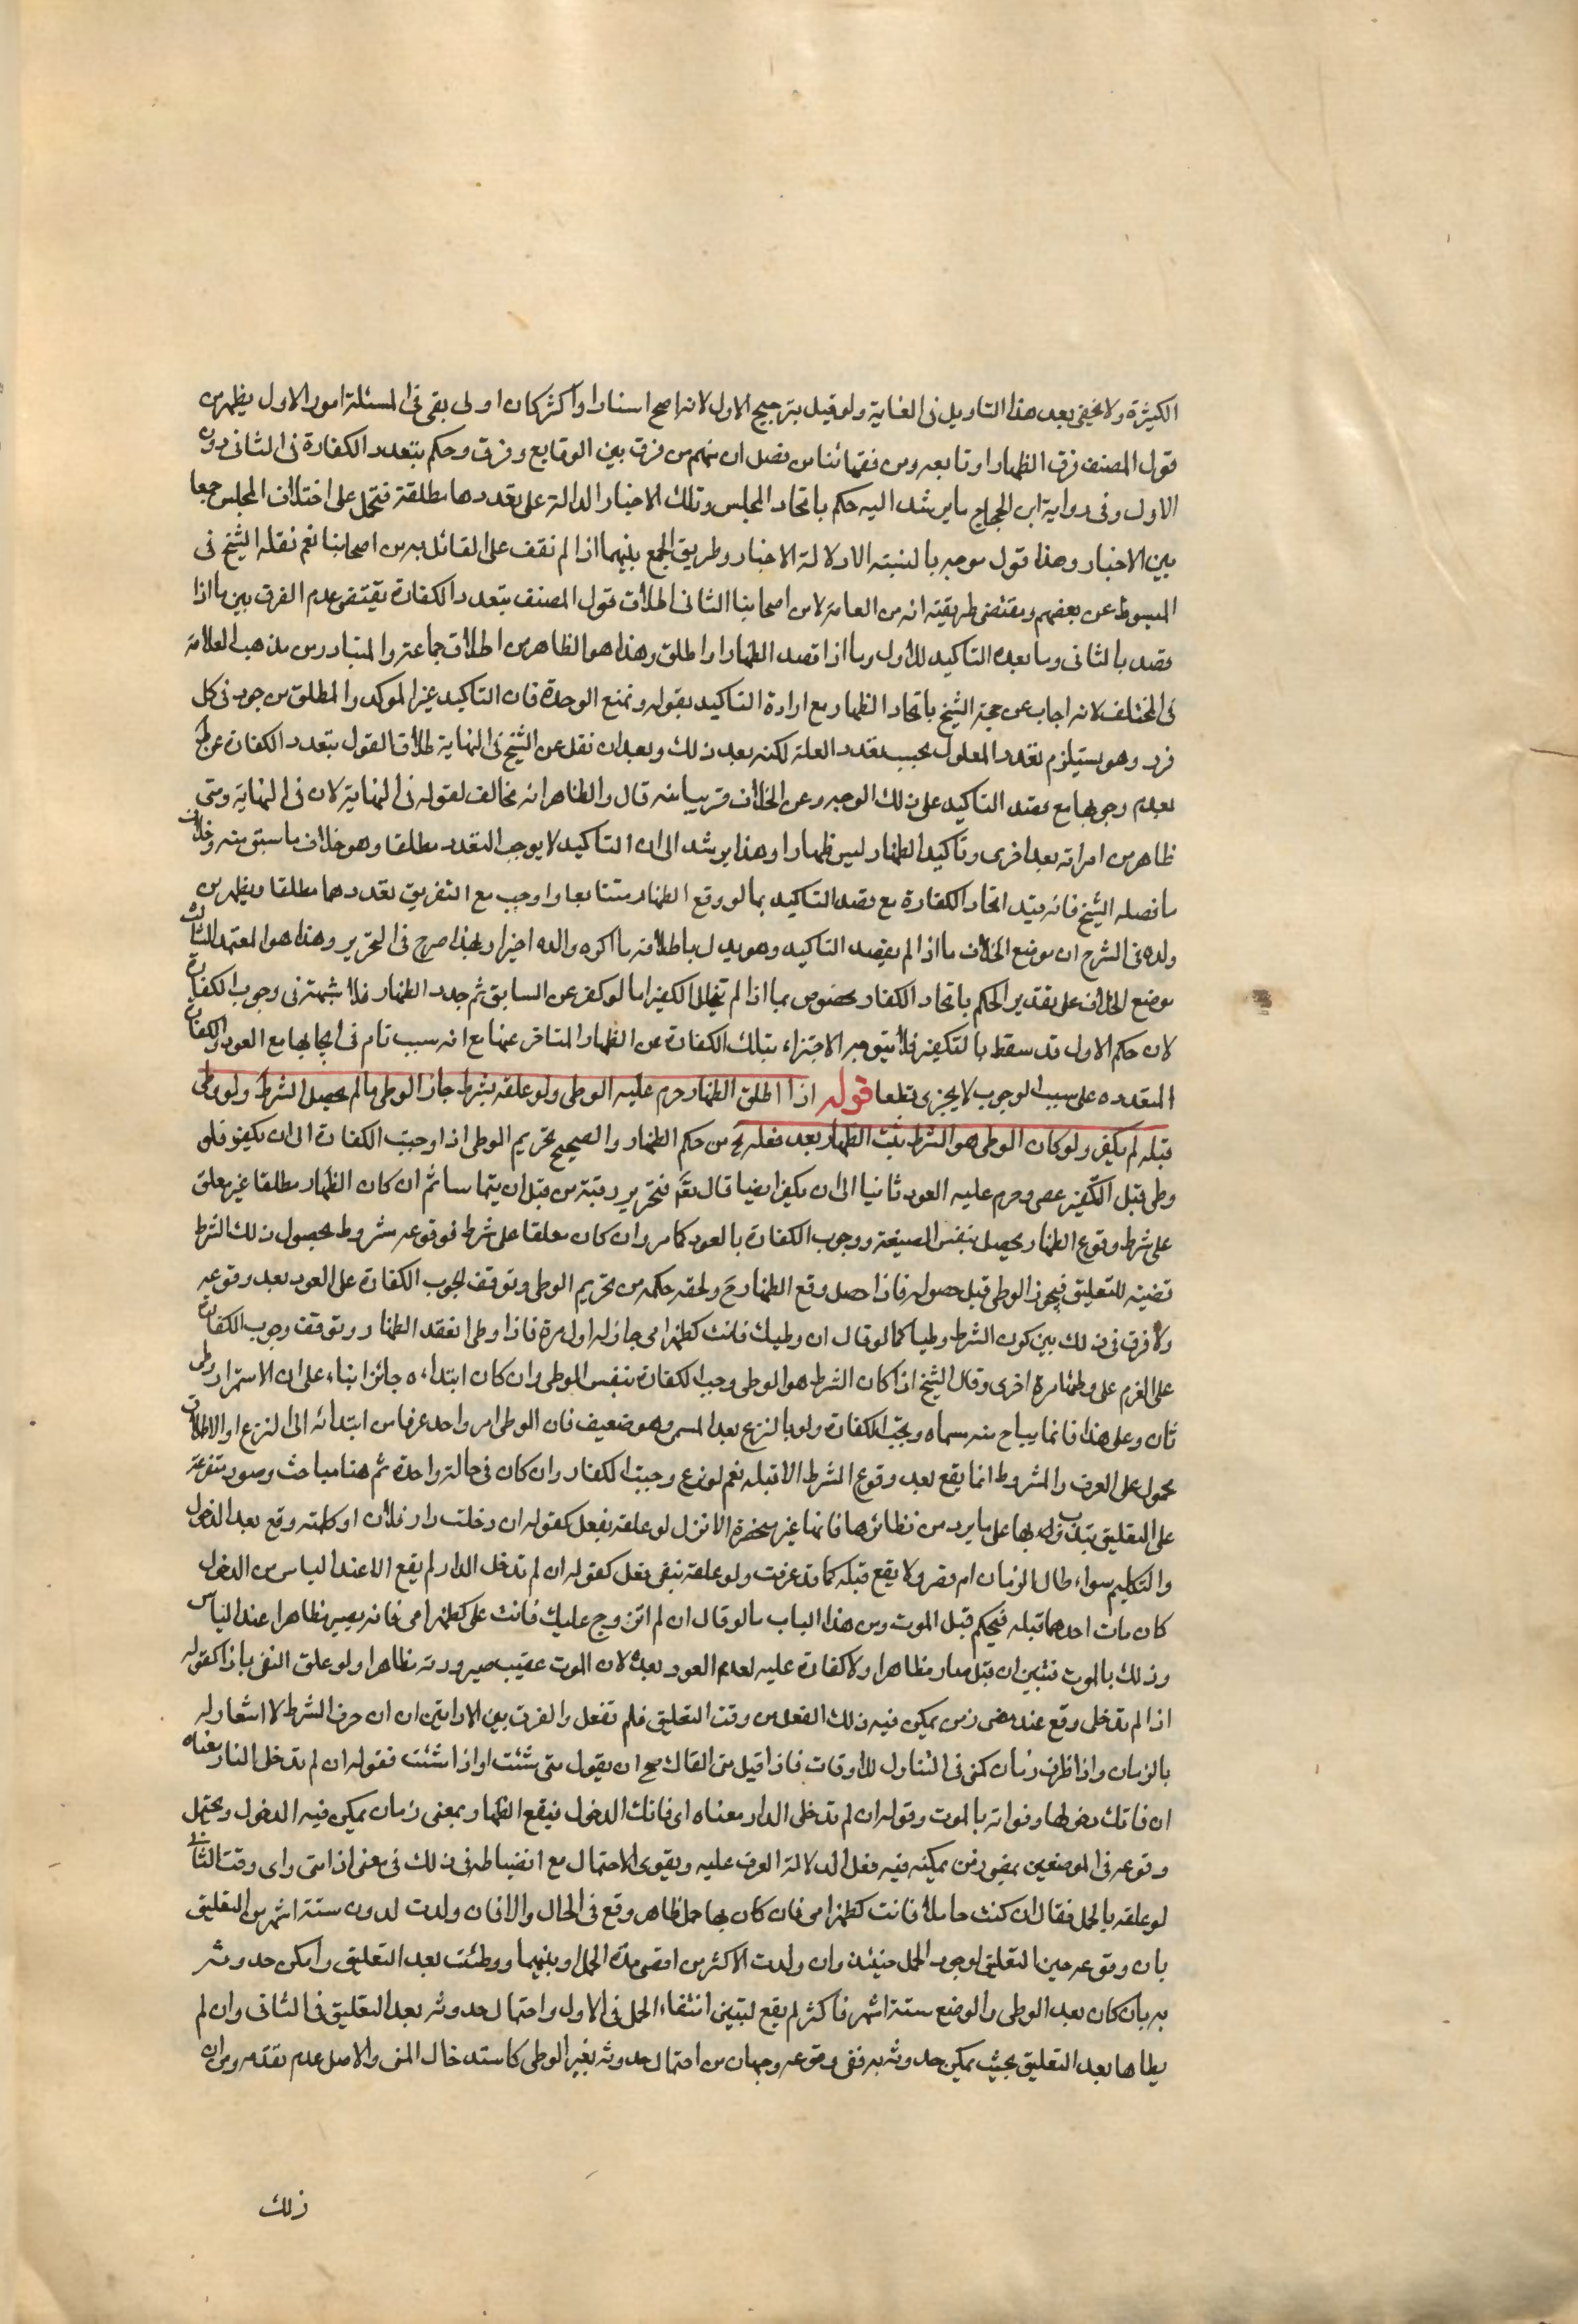 الكثيرة ولا يخفى بعد هذا التاويل فى الغاية ولو قيل بترجيح الاول لانه اصح اسنادا واكثر كان اولى بقى فى المسئلة امور الاول يظهر من
قول المصنف فرق الظهار او تابعه ومن فقهائنا من فصل ان منهم من فرق بين الوقايع وفرق وحكم بتعدد الكفارة فى الثانى دون
الاول وفى رواية ابن الحجاج ما يرشد اليه حكم باتحاد المجلس وتلك الاخبار الدالة على تعددها مطلقة فتحمل على اختلاف المجلس جمعا
بين الاخبار وهذا قول موجه بالنسبة الى دلالة الاخبار وطريق الجمع بينهما اذا لم نقف على القائل به من اصحابنا نعم نقله الشيخ فى
المبسوط عن بعضهم ومقتضى طريقته انه من العامة لا من اصحابنا الثانى اطلاق قول المصنف بتعدد الكفارة يقتضى عدم الفرق بين ما اذا
قصد بالثانى وما بعده التاكيد للاول وما اذا قصد الظهار او اطلق وهذا هو الظاهر من اطلاق جماعة والمتبادر من مذهب العلامة
فى المختلف لانه اجاب عن حجة الشيخ باتحاد الظهار مع ارادة التاكيد بقوله ونمنع الوحدة فان التاكيد غير الموكد والمطلق موجود فى كل
فرد وهو يستلزم تعدد المعلول بحسب تعدد العلة لكنه بعد ذلك وبعد ان نقل عن الشيخ فى النهاية اطلاق القول بتعدد الكفارة صرح
بعدم وجوبها مع قصد التاكيد على ذلك الوجه وعن الخلاف قريبا منه قال والظاهر انه مخالف لقوله فى النهاية لان فى النهاية ومتى
ظاهر من امراته بعد اخرى وتاكيد الظهار ليس ظهارا وهذا يرشد الى ان التاكيد لا يوجب التعدد مطلقا وهو خلاف ما سبق منه وخلاف
ما فصله الشيخ فانه قيد اتحاد الكفارة مع قصد التاكيد بما لو وقع الظهار متتابعا واوجب مع التفريق تعددها مطلقا ويظهر من
ولده فى الشرح ان موضع الخلاف ما اذا لم يقصد التاكيد وهو يدل باطلاقه ما اكره والده اخيرا وبهذا صرح فى التحرير وهذا هو المعتمد الثالث
موضع الخلاف على تقدير الحكم باتحاد الكفار مخصوص بما اذا لم يتخلل التكفير اما لو كفر عن السابق ثم جدد الظهار فلا شبهة فى وجوب الكفارة
لان حكم الاول قد سقط بالتكفير فلا يتوجه الاجتزاء بتلك الكفارة عن الظهار المتاخر عنها مع انه سبب تام فى ايجابها مع العود والكفارة
المتقدمه على سبب الوجوب لا يجزى قطعا قوله اذا اطلق الظهار حرم عليه الوطى ولو علقه بشرط جاز الوطى ما لم يحصل الشرط ولو وطى
قبله لم يكفر ولو كان الوطى هو الشرط يثبت الظهار بعد فعله من حكم الظهار والصحيح تحريم الوطى اذا وجبت الكفارة الى ان يكفر فلو
وطى قبل التكفير عصى وحرم عليه العود ثانيا الى ان يكفر ايضا قال تعم فتحرير رقبة من قبل ان يتماسا ثم ان كان الظهار مطلقا غير معلق
على شرط وقوع الظهار يحصل بنفس الصيغة ووجوب الكفارة بالعود كما مر وان كان معلقا على شرط فوقوعه مشروط بحصول ذلك الشرط
قضية للتعليق فيجوز الوطى قبل حصوله فاذا حصل وقع الظهار ح ولحقه حكمه من تحريم الوطى وتوقف لوجوب الكفارة على العود بعد وقوعه
ولا فرق فى ذلك بين كون الشرط وطيا كما لو قال ان وطيتك فانت كظهر امى جاز له اول مرة فاذا وطى انعقد الظهار وتوقف وجوب الكفارة
على العزم على وطئها مرة اخرى وقال الشيخ اذا كان الشرط هو الوطى وجب الكفارة بنفس الوطى وان كان ابتداؤه جائزا بناء على ان الاستمرار وطى
ثان وعلى هذا فانما يباح منه مسماه ويجب الكفارة ولو بالنزع بعد المسمى وهو ضعيف فان الوطى امر واحد عرفا من ابتدائه الى النزع او الاطلاق
محمول على العرف والمشروط انما يقع بعد وقوع الشرط لا قبله نعم لو نزع وجبت الكفار وان كان فى حالة واحدة ثم هنا مباحث وصور متفرعة
على التعليق يتدرب بها على ما يرد من نظائرها فانها غير منحصرة الاول لو علقه بفعل كقوله ان دخلت دار فلان او كلمته وقع بعد الدخول
والتكليم سواء طال الزمان ام قصر ولا يقع قبله كما قد عرفت ولو علقه بنفى فعل كقوله ان لم تدخل الدار لم يقع الا عند الياس من الدخول
كان مات احدهما قبله فيحكم قبل الموت ومن هذا الباب ما لو قال ان لم اتزوج عليك فانت على كظهر امى فانه يصير مظاهرا عند الياس
وذلك بالموت فتبين ان قبل صار مظاهرا ولا كفارة عليه لعدم العود بعده لان الموت عقيب صيرورته مظاهرا ولو علق النفى باذا كقوله
اذا لم تدخلى وقع عند مضى زمن يمكن فيه ذلك الفعل من وقت التعليق فلم تفعل والفرق بين الاداتين ان ان حرف الشرط لا اشعار له
بالزمان واذا ظرف زمان كمتى فى التناول للاوقات فاذا قيل متى القاك صح ان يقول متى شئت او اذا شئت فقوله ان لم تدخل النار معناه
ان فاتك دخولها وفواته بالموت وقوله ان لم تدخلى الدار معناه اى فاتك الدخول فيقع الظهار بمعنى زمان يمكن فيه الدخول ويحتمل
وقوعه فى الموضعين بمضى زمن يمكنه فيه فعل الدلالة العرف عليه ويقوى الاحتمال مع انضباطه فى ذلك فى معنى اذا متى واى وقت الثانى
لو علقه بالحمل فقال ان كنت حاملا فانت كظهر امى فان كان بها حمل ظاهر وقع فى الحال والا فان ولدت لدون ستة اشهر من التعليق
بان وقوعه حين التعليق لوجود الحمل حينئذ وان ولدت لاكثر من اقصى مدة الحمل او بينهما ووطئت بعد التعليق وامكن حدوثه
به بان كان بعد الوطى والوضع ستة اشهر فاكثر لم يقع لتبين انتفاء الحمل فى الاول واحتمال حدوثه بعد التعليق فى الثانى وان لم
يطاها بعد التعليق بحيث يمكن حدوثه به ففى وقوعه وجهان من احتمال حدوثه بغير الوطى كاستدخال المنى والاصل عدم تقدمه ومن ان
ذلك